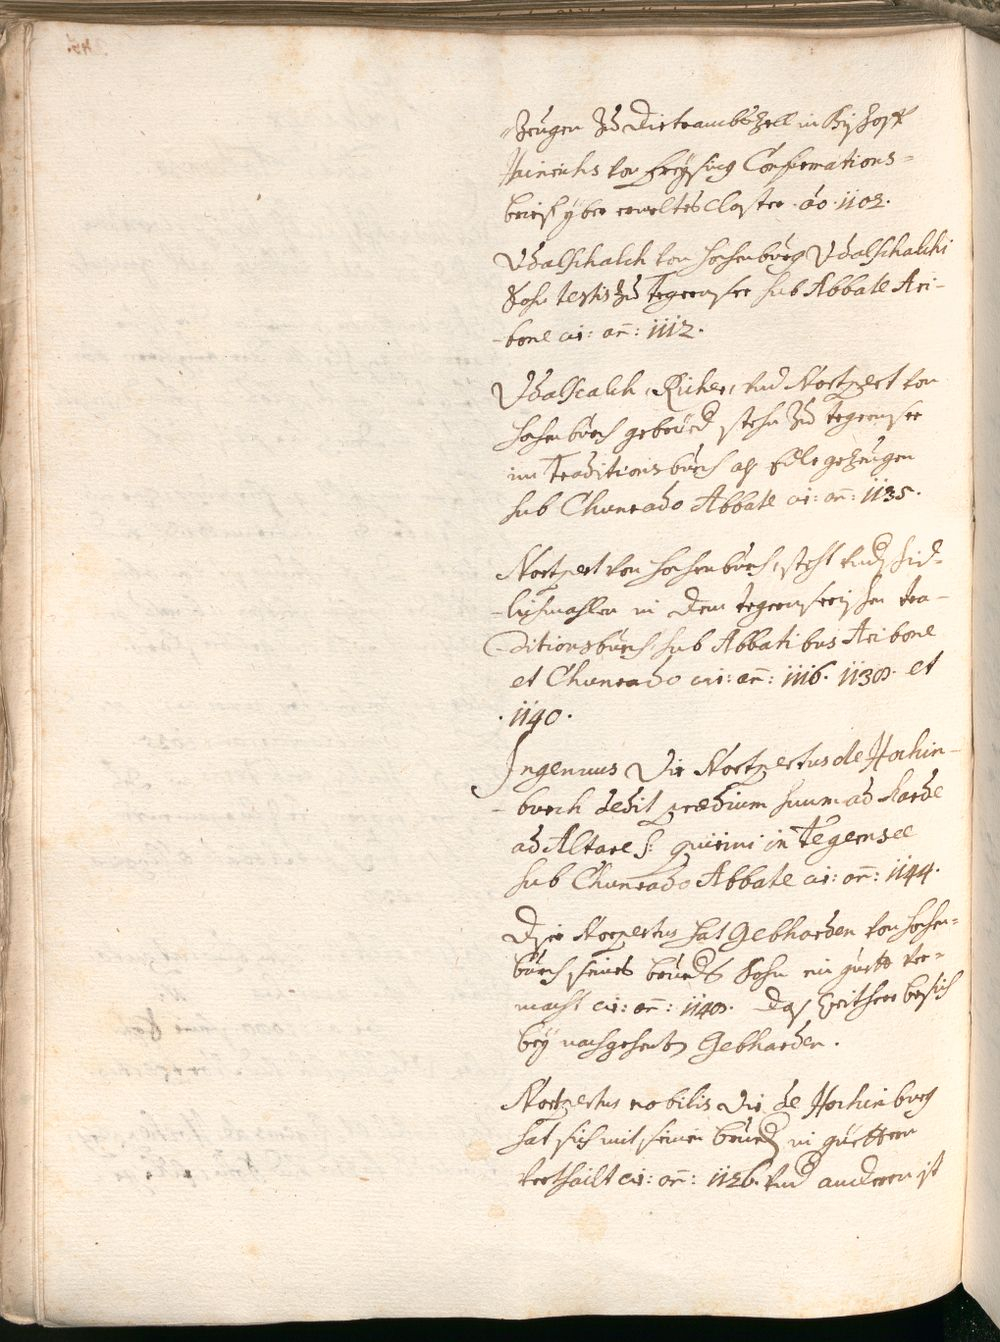 Zeugen zu Dietrambszell in Bischoff
Hainrichs von Freysing Confirmations-
brieff yber ermeltes Closter. ao. 1102.
Vdalschalch von Hohenburg Vdalschalchi
Sohn testis zu Tegernsee sub Abbate Ari-
-bone ci: an: 1112.
Vdalscalch, Richer, vnd Nortpert von
Hohenburch gebrued stehn zu tegernsee
im Traditionsbuech als Edle gezeugen
sub Chunrado Abbate ci: an: 1135.
Nortpert von Hohenburch, steht vnd
-lichmahlen in dem tegernseeischen tra-
-ditionsbuech, sub Abbatibus Aribone
et Chunrado ci: an: 1116. 1130. et
. 1140 .
Ingenuus Vir Nortpertus de Hochin-
- burch dedit prædium suum ad Harde
ad Altare S. quirini in Tegernsee
sub Chunrado Abbate ci: an: 1144.
Diser Norpertus hat Gebharden von Hohen-
burch seines brueds Sohn ein guett ver-
macht ci: an: 1140. Das weithere besich
bey nachgesenten Gebharden.
Nortpertus nobilis Vir de Hochinburg
hat sich mit seinen brued in güettern
verthailt ci: an: 1126. vnd anderen ist